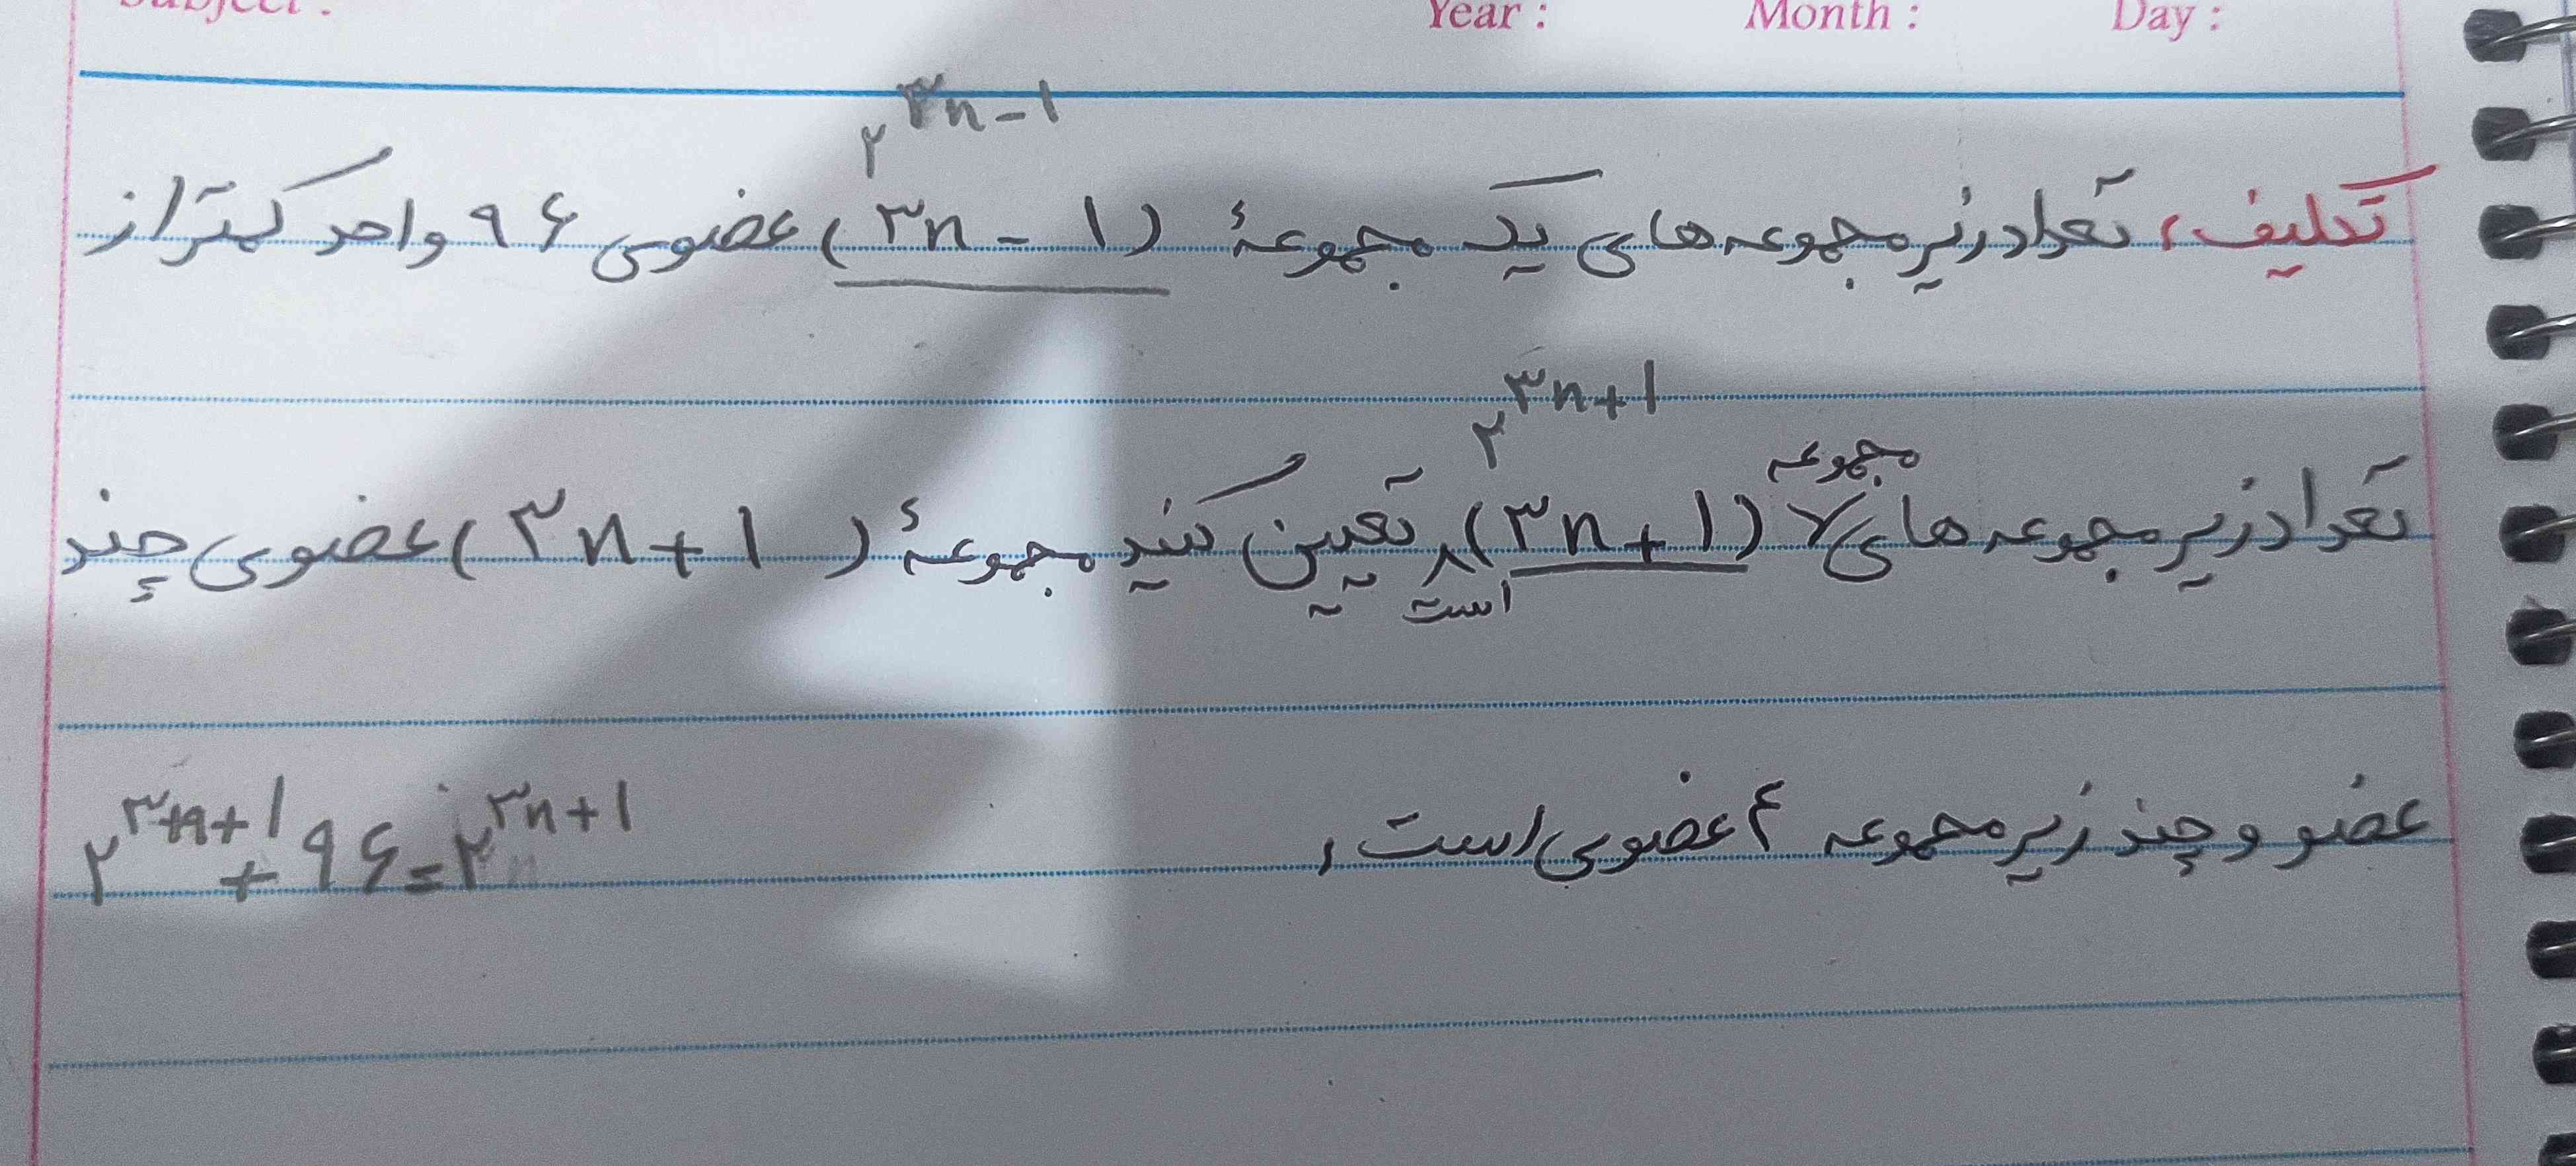 Subject : Year : Month : Day :
۲^۳n-۱
تکلیف، تعداد زیرمجموعه های یک مجموعهٔ (۳n - ۱) عضوی ۹۶ واحد کمتر از
۲^۳n+۱
مجموعه
تعداد زیرمجموعه های (۳n + ۱) تعیین کنید مجموعهٔ (۳n + ۱) عضوی چند
است
عضو و چند زیرمجموعه ۴ عضوی است،
۲^۳n+۱ + ۹۶ = ۲^۳n+۱